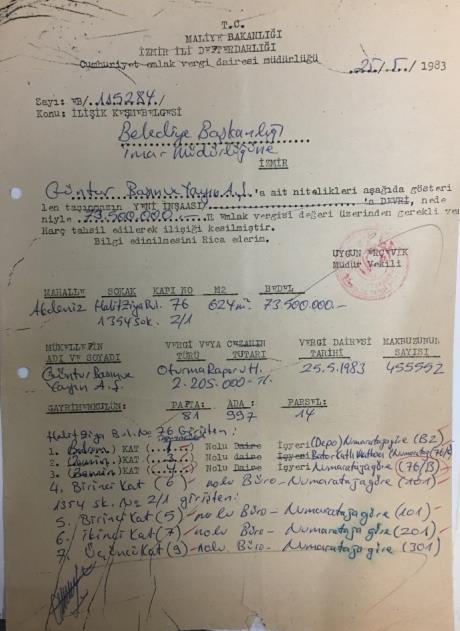 T.C.
MALİYE BAKANLIĞI
İZMİR İLİ DEFTERDARLIĞI
Cumhuriyet emlak vergi dairesi müdürlüğü
25/5/1983
Sayı: EB/.115284./
Konu: İLİŞİK KESMEBELGESİ
Belediye Başkanlığı
İmar Müdürlüğüne
İZMİR
Güntur Basın ve Yayın A.Ş. 'a ait nitelikleri aşağıda gösteri
len taşınmazın YENİ İNŞAASI 'a DEVRİ, nede
niyle 73.500.000.— Emlak vergisi değeri üzerinden gerekli ve
Harç tahsil edilerek ilişiği kesilmiştir.
Bilgi edinilmesini Rica ederim.
UYGUN
Müdür Vekili
MAHALLE SOKAK KAPI NO M2 BEDEL
Akdeniz Halit Ziya Bul. 76 624m² 73.500.000.—
1354 sok. 2/1
MÜKELLEFİN VERGİ VEYA CEZANIN VERGİ DAİRESİ MAKBUZUNUN
ADI VE SOYADI TÜRÜ TUTARI TARİHİ SAYISI
Güntur Basın ve Oturma Raporu H. 25.5.1983 455552
Yayın A.Ş. 2.205.000-Tl.
GAYRİMENKULÜN: PAFTA: ADA: PARSEL:
81 997 14
Halit Ziya Bul. No 76 Girişten:
1. Bodrum.) KAT (..1..) Nolu Daire İşyeri (Depo) Numaratajagöre (B2)
2. (Zemin.) KAT (..3..) Nolu Daire İşyeri Numaratajgöre (76/A)
3. (Zemin.) KAT (..4..) Nolu Daire İşyeri Numaratajagöre (76/B)
4. Birinci Kat (6) nolu Büro - Numaratajagöre (101)
1354 sk. No 2/1 girişten:
5. Birinci Kat (5) nolu Büro - Numaratajagöre (101)
6. İkinci Kat (7) nolu Büro - Numaratajagöre (201)
7. Üçüncü Kat (9) nolu Büro - Numarataja göre (301)